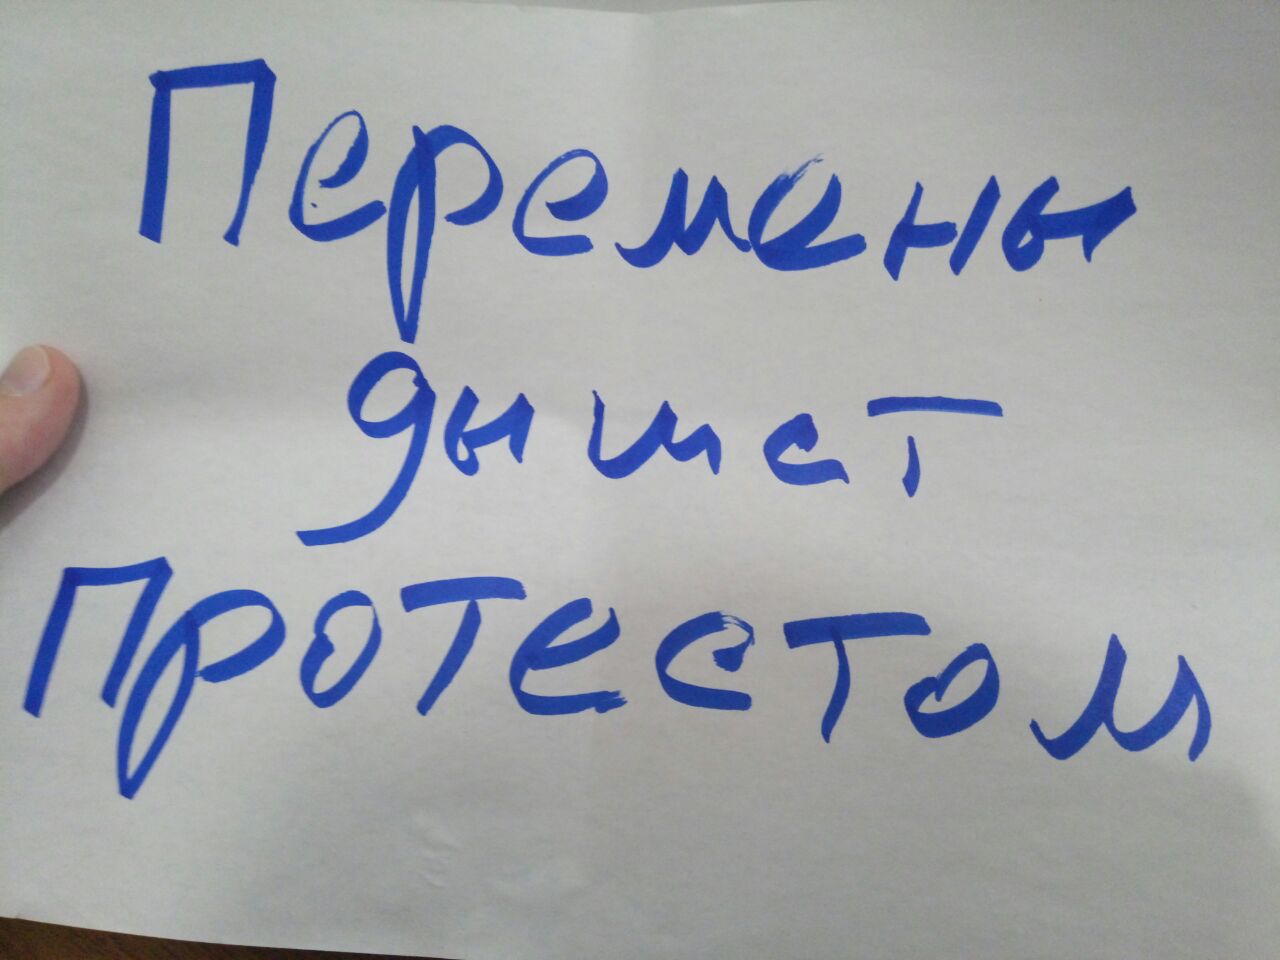 Перемены
дышат
протестом